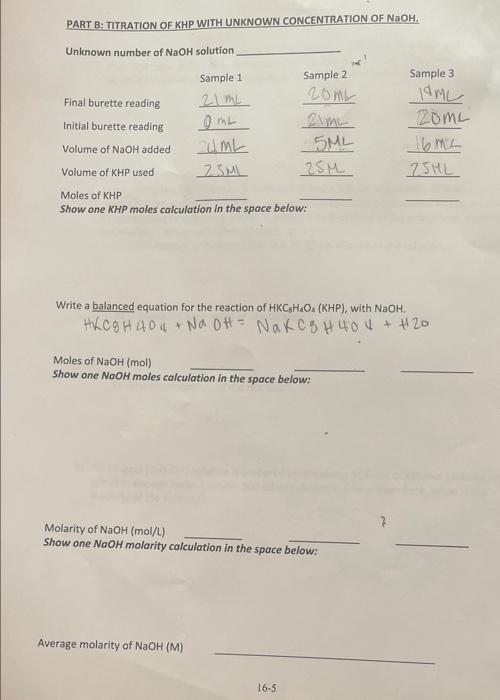 PART B: TITRATION OF KHP WITH UNKNOWN CONCENTRATION OF NaOH.
Unknown number of NaOH solution
Sample 1 Sample 2 Sample 3
Final burette reading 21 mL 20 mL 19 ML
Initial burette reading 0 mL 21 mL 20mL
Volume of NaOH added mL 5ML 16 mL
Volume of KHP used 25ML 25M 25ML
Moles of KHP
Show one KHP moles calculation in the space below:
Write a balanced equation for the reaction of HKC₈H₄O₄ (KHP), with NaOH.
HKC8H4O4 + NaOH = NaKC8H4O4 + H2O
Moles of NaOH (mol)
Show one NaOH moles calculation in the space below:
Molarity of NaOH (mol/L)
Show one NaOH molarity calculation in the space below:
Average molarity of NaOH (M)
16-5